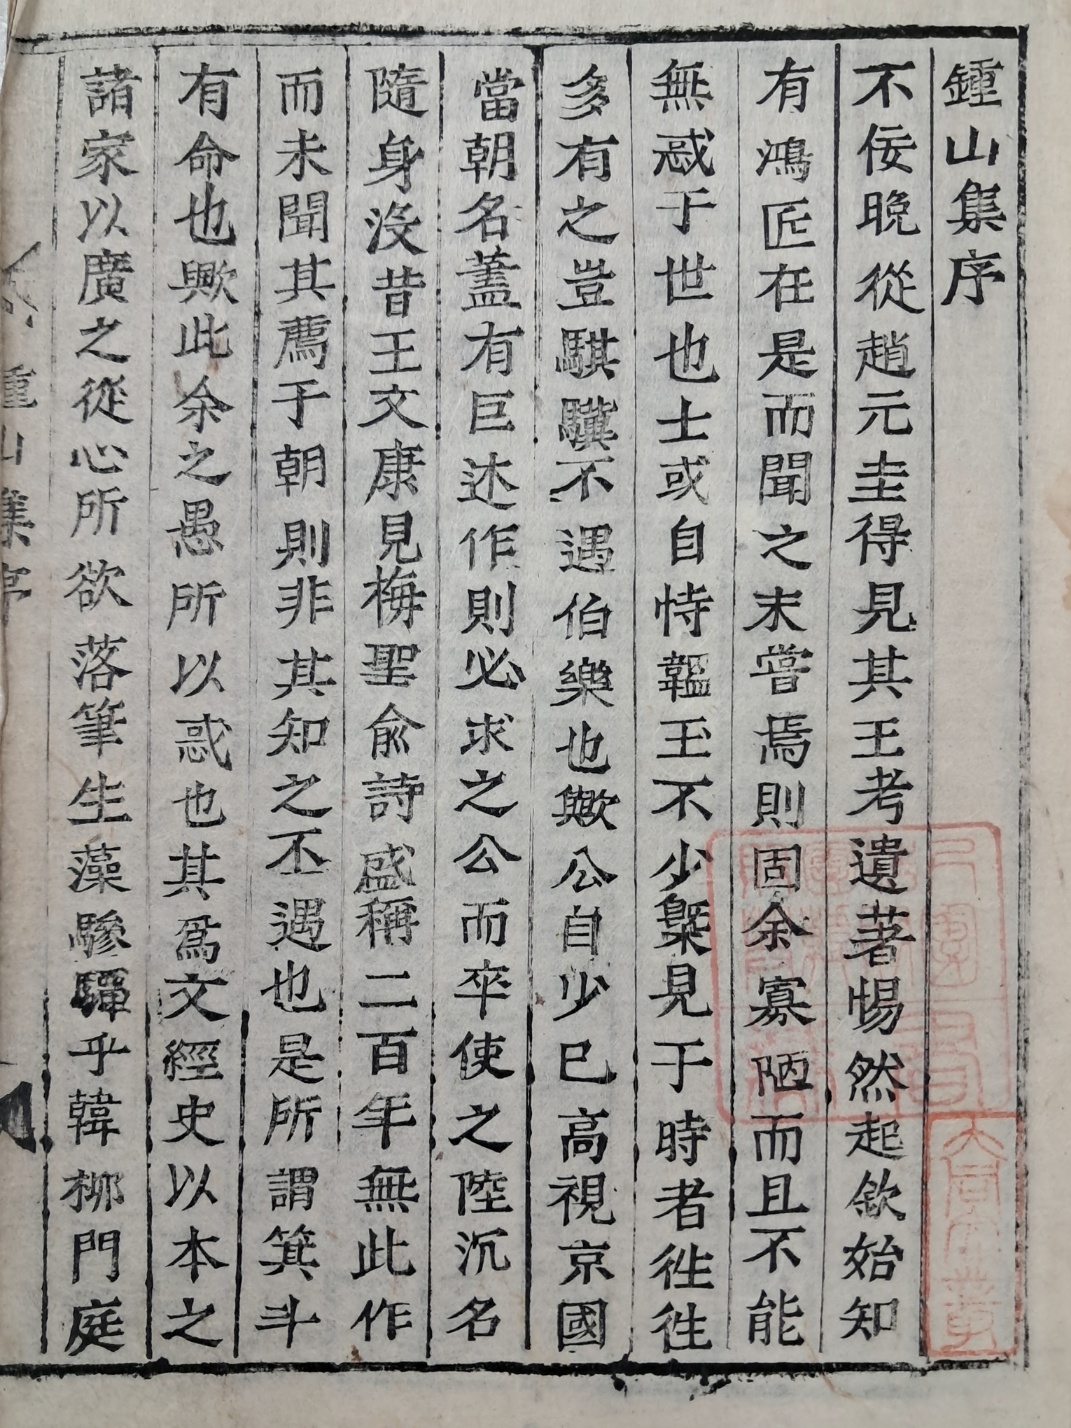 鍾山集序
不佞晚從趙元圭得見其王考遺著惕然起欽始知
有鴻匠在是而聞之末嘗焉則固余寡陋而且不能
無惑于世也士或自恃韞玉不少槩見于時者徃徃
多有之豈騏驥不遇伯樂也歟公自少已高視京國
當朝名蓋有巨述作則必求之公而卒使之陸沉名
隨身沒昔王文康見梅聖俞詩盛稱二百年無此作
而未聞其薦于朝則非其知之不遇也是所謂箕斗
有命也歟此余之愚所以惑也其爲文經史以本之
諸家以廣之從心所欲落筆生藻驂驔乎韓柳門庭
鍾山集序